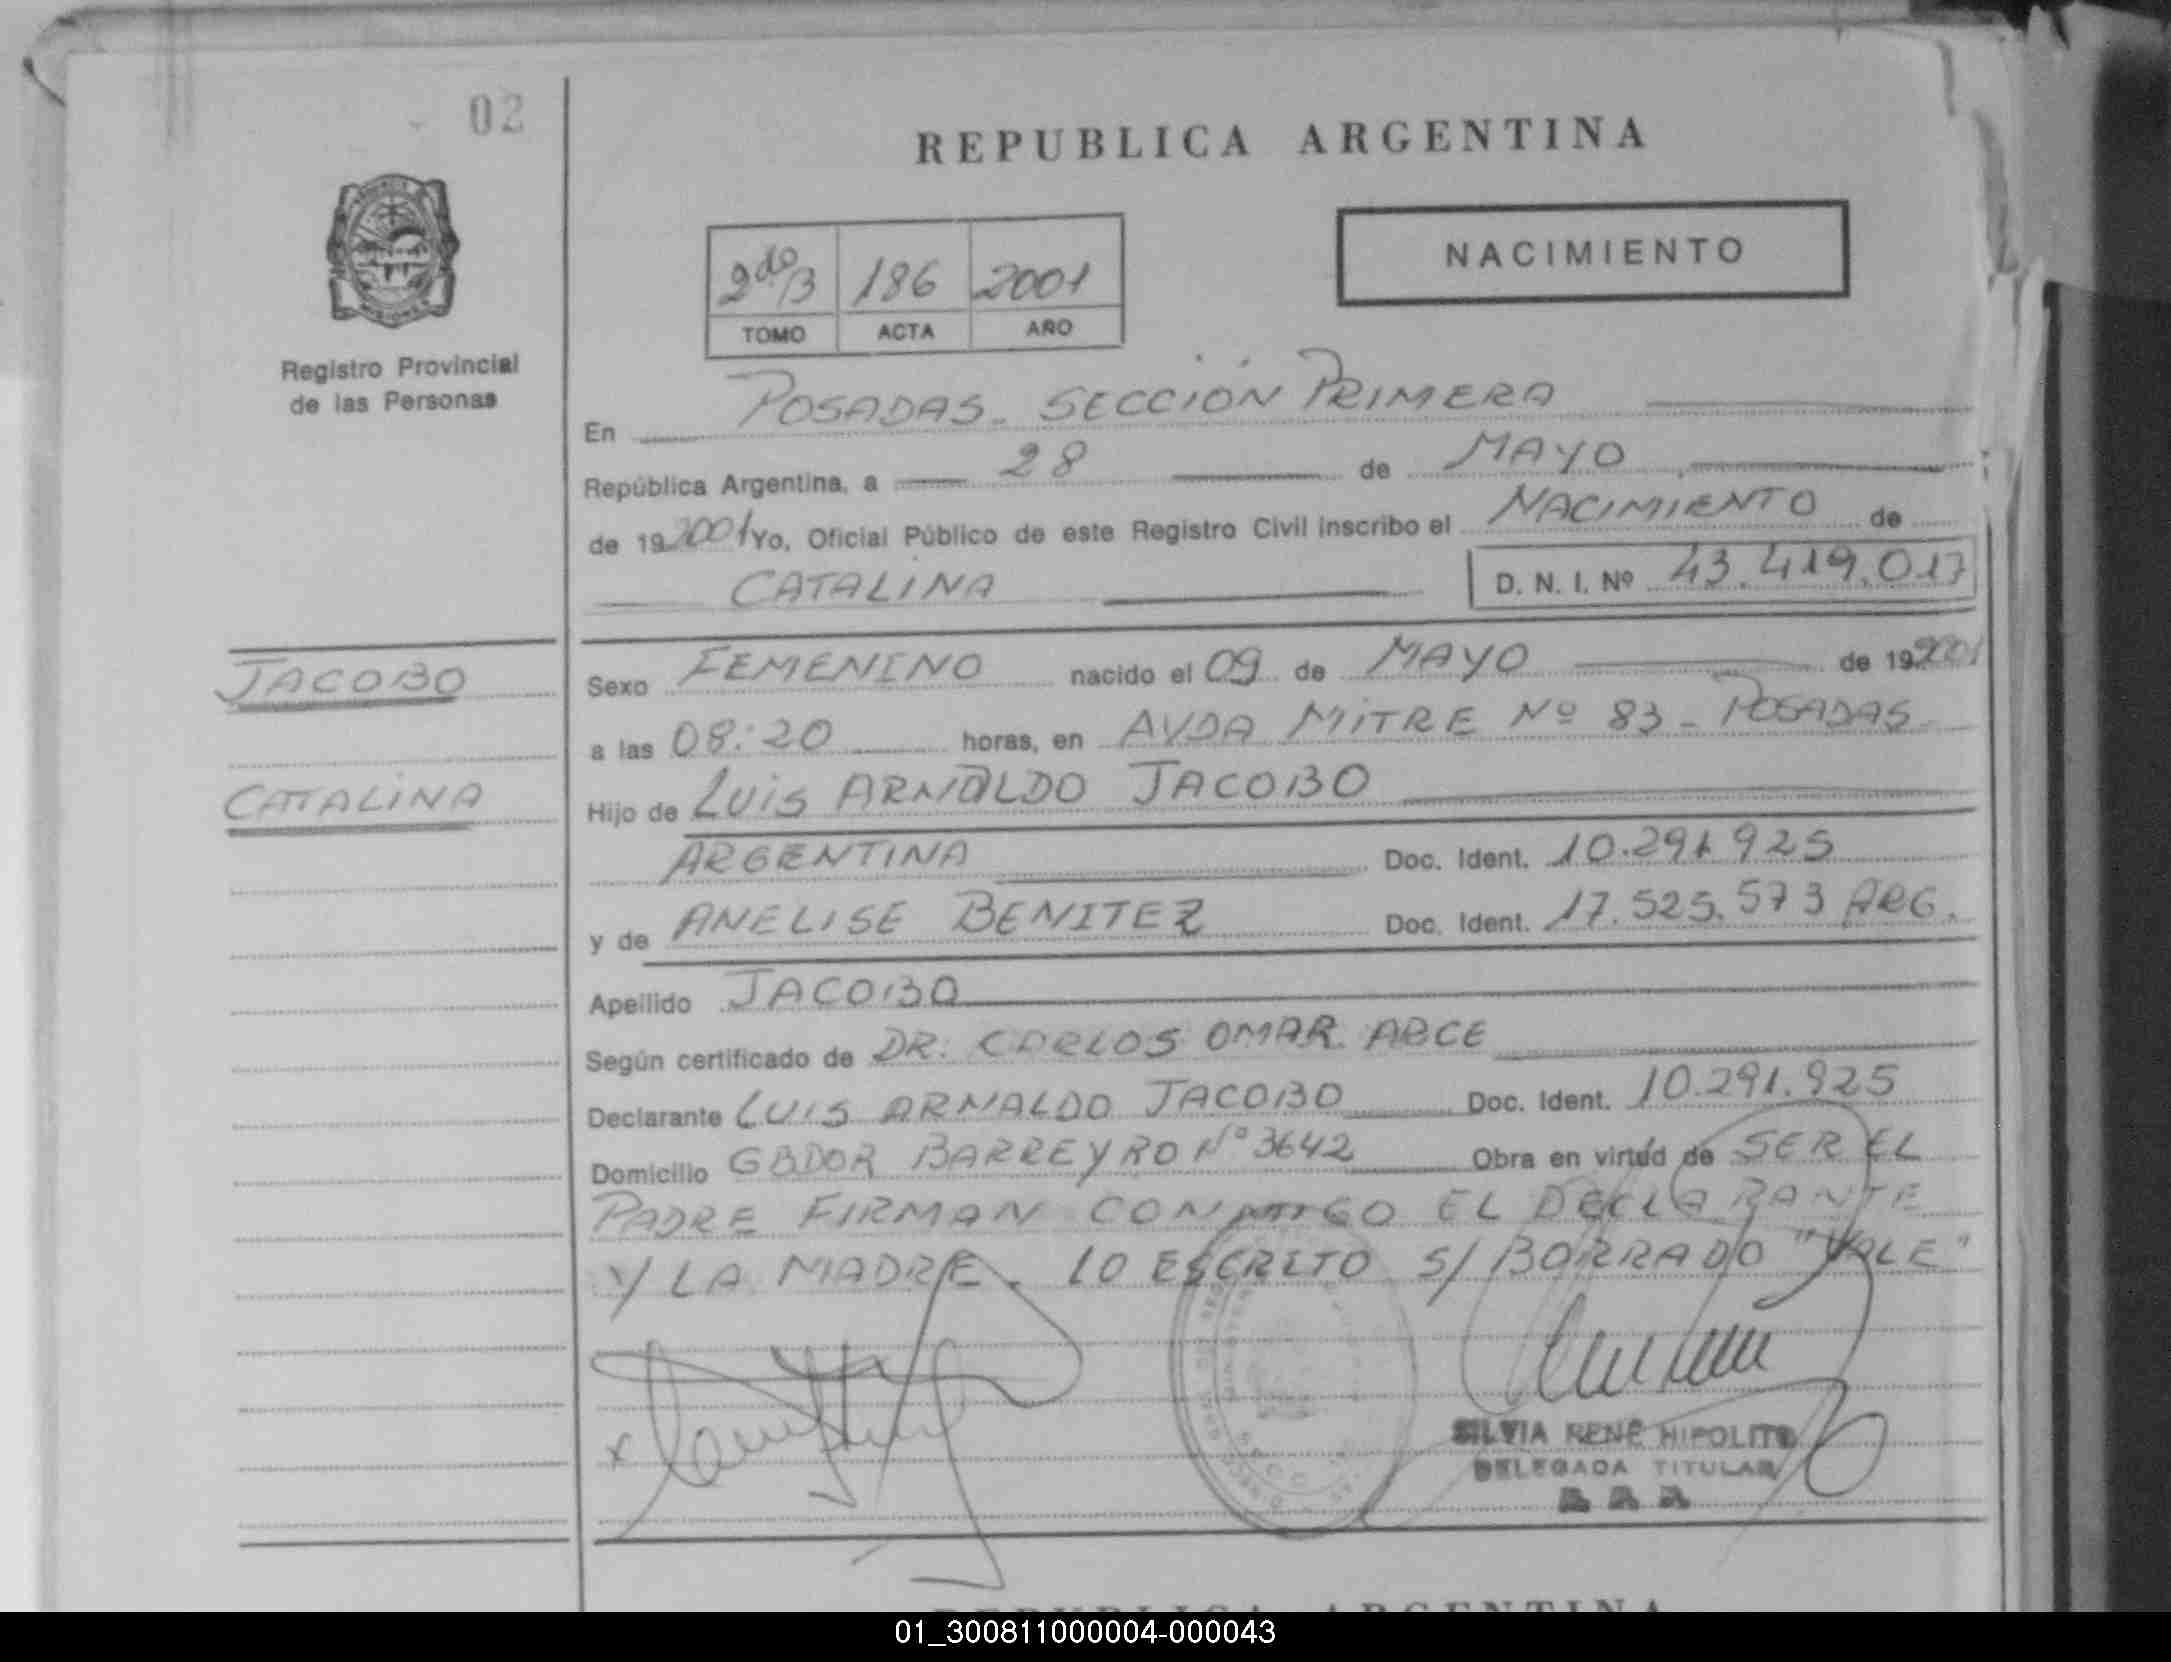 02
REPUBLICA ARGENTINA
NACIMIENTO
2do/3 186 2001
TOMO ACTA AÑO
Registro Provincial
de las Personas
En POSADAS - SECCIÓN PRIMERA
República Argentina, a 28 de MAYO
de 192001 Yo, Oficial Público de este Registro Civil inscribo el NACIMIENTO de
CATALINA D. N. I. Nº 43.419.017
JACOBO
CATALINA
Sexo FEMENINO nacido el 09 de MAYO de 192001
a las 08:20 horas, en AVDA MITRE Nº 83 - POSADAS -
Hijo de LUIS ARNALDO JACOBO
ARGENTINA Doc. Ident. 10.291.925
y de ANELISE BENITEZ Doc. Ident. 17.525.573 ARG.
Apellido JACOBO
Según certificado de DR. CARLOS OMAR ARCE
Declarante LUIS ARNALDO JACOBO Doc. Ident. 10.291.925
Domicilio GBDOR BARREYRO Nº 3642 Obra en virtud de SER EL
PADRE FIRMAN CONMIGO EL DECLARANTE
Y LA MADRE - LO ESCRITO S/ BORRADO "VALE"
x
SILVIA RENÉ HIPOLITO
DELEGADA TITULAR
REPUBLICA ARGENTINA
01_300811000004-000043